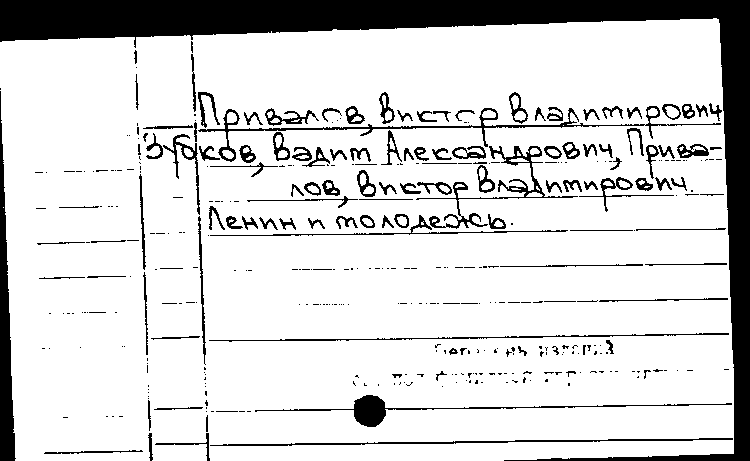 Привалов, Виктор Владимирович
Зубков, Вадим Александрович, Прива-
лов, Виктор Владимирович.
Ленин и молодежь.